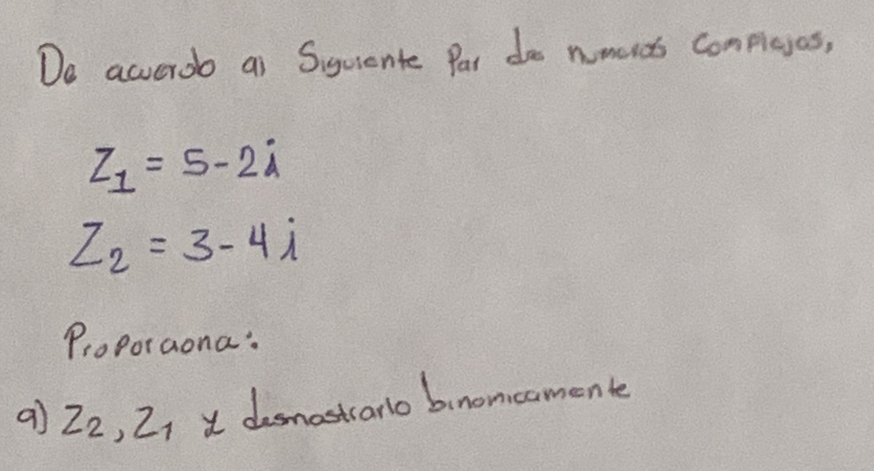 De acuerdo al Siguiente Par de numeros Complejos,
Z₁ = 5-2i
Z₂ = 3-4i
Proporciona:
a) Z₂, Z₁ y desmostrarlo binomicamente